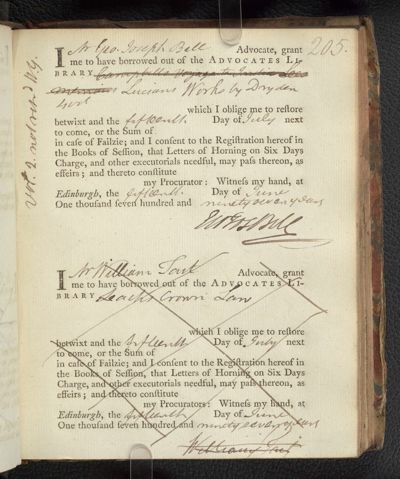 205.
I Mr Geo. Joseph Bell Advocate, grant
me to have borrowed out of the ADVOCATES LI-
BRARY Campbells Voyage to India
Lucians Works by Dryden
4 vol
which I oblige me to restore
betwixt and the fifteenth Day of July next
to come, or the Sum of
in case of Failzie; and I consent to the Registration hereof in
the Books of Session, that Letters of Horning on Six Days
Charge, and other executorials needful, may pass thereon, as
effeirs; and thereto constitute
my Procurator: Witness my hand, at
Edinburgh, the fifteenth Day of June
One thousand seven hundred and ninety seven years
Geo Jos Bell
vol. 2. not retd
I Mr William Tait Advocate, grant
me to have borrowed out of the ADVOCATES LI-
BRARY Leachs Crown Law
which I oblige me to restore
betwixt and the fifteenth Day of July next
to come, or the Sum of
in case of Failzie; and I consent to the Registration hereof in
the Books of Session, that Letters of Horning on Six Days
Charge, and other executorials needful, may pass thereon, as
effeirs; and thereto constitute
my Procurators: Witness my hand, at
Edinburgh, the fifteenth Day of June
One thousand seven hundred and ninety seven years
William Tait